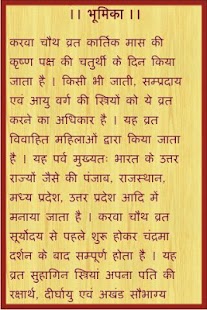 ।। भूमिका ।।
करवा चौथ व्रत कार्तिक मास की
कृष्ण पक्ष की चतुर्थी के दिन किया
जाता है । किसी भी जाती, सम्प्रदाय
एवं आयु वर्ग की स्त्रियों को ये व्रत
करने का अधिकार है । यह व्रत
विवाहित महिलाओं द्वारा किया जाता
है । यह पर्व मुख्यतः भारत के उत्तर
राज्यों जैसे की पंजाब, राजस्थान,
मध्य प्रदेश, उत्तर प्रदेश आदि में
मनाया जाता है । करवा चौथ व्रत
सूर्योदय से पहले शुरू होकर चंद्रमा
दर्शन के बाद सम्पूर्ण होता है । यह
व्रत सुहागिन स्त्रियां अपना पति की
रक्षार्थ, दीर्घायु एवं अखंड सौभाग्य